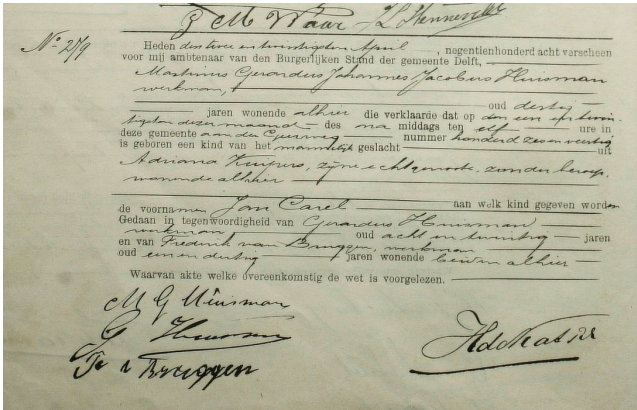 P M Waar
No 279
Heden den twee en twintigsten April, negentienhonderd acht verscheen
voor mij ambtenaar van den Burgerlijken Stand der gemeente Delft,
Martinus Gerardus Johannes Jacobus Huisman
werkman,
oud dertig
jaren wonende alhier die verklaarde dat op den een en twin-
tigsten dezer maand des na middags ten elf ure in
deze gemeente aan den nummer honderd zes en veertig
is geboren een kind van het mannelijk geslacht uit
Adriana Kuipers, zijne echtgenoote, zonder beroep,
wonende alhier
de voornamen Jan Carel aan welk kind gegeven worden
Gedaan in tegenwoordigheid van Gerardus Huisman
werkman oud acht en twintig jaren
en van Frederik van Bruggen, werkman
oud een en dertig jaren wonende beiden alhier
Waarvan akte welke overeenkomstig de wet is voorgelezen.
M G Huisman
G Huisman
Fr v Bruggen